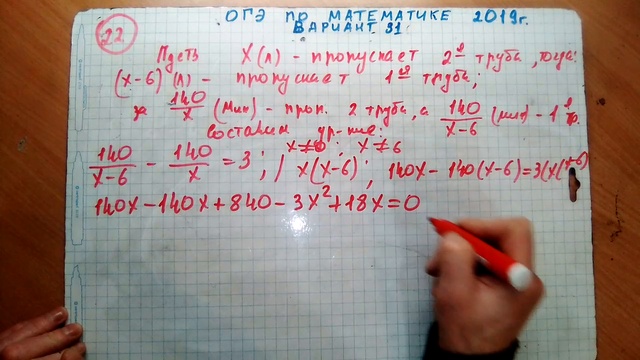 ОГЭ по МАТЕМАТИКЕ 2019г.
ВАРИАНТ 31
22
Пусть X(л) - пропускает 2-я труба, тогда:
(x-6)(л) - пропускает 1-ая труба;
за 140/x (мин) - проп. 2 труба, а 140/x-6 (мин) - 1-я тр.
Составим ур-ние:
x≠0; x≠6
140/x-6 - 140/x = 3; | x(x-6); 140x - 140(x-6)=3(x(x-6)
140x-140x+840-3x²+18x=0